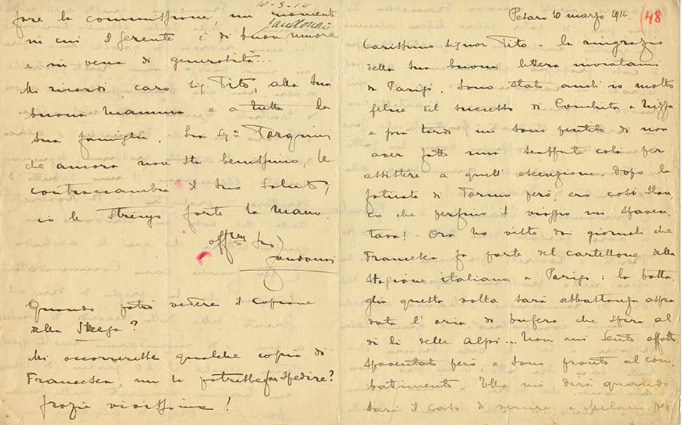 Pesaro 10 marzo 1914.
(48)
Carissimo Signor Tito – La ringrazio
della sua buona lettera inviatami
da Parigi. Sono stato anch'io molto
felice del successo di Conchita a Nizza
e più tardi mi sono pentito di non
aver fatto una scappata colà per
assistere a quell' esecuzione. Dopo la
faticata di Torino però, ero così stan
co che perfino il viaggio mi spaven
tava! – Ora ho visto dai giornali che
Francesca fa parte del cartellone della
Stagione italiana a Parigi: la batta
glia questa volta sarà abbastanza aspra
data l' aria di bufera che spira al
di là delle Alpi... Non mi sento affatto
spaventato però, e sono pronto al com
battimento. Ella mi dirà quando
sarà il caso di venire, e
10-3-14
Zandonai
fare la commissione, un momento
in cui il Gerente è di buon umore
e in vena di generosità...
Mi ricordi, caro Sig. Tito, alla sua
buona mamma e a tutta la
sua famiglia. La Sig.na Tarquini
che ancora non sta benissimo, le
contraccambia i suoi saluti;
io le stringo forte la mano.
aff.mo suo
Zandonai
Quando potrò vedere il copione
della Strega?
Mi occorrerebbe qualche copia di
Francesca, me le potrebbe far spedire?
Grazie vivissime!